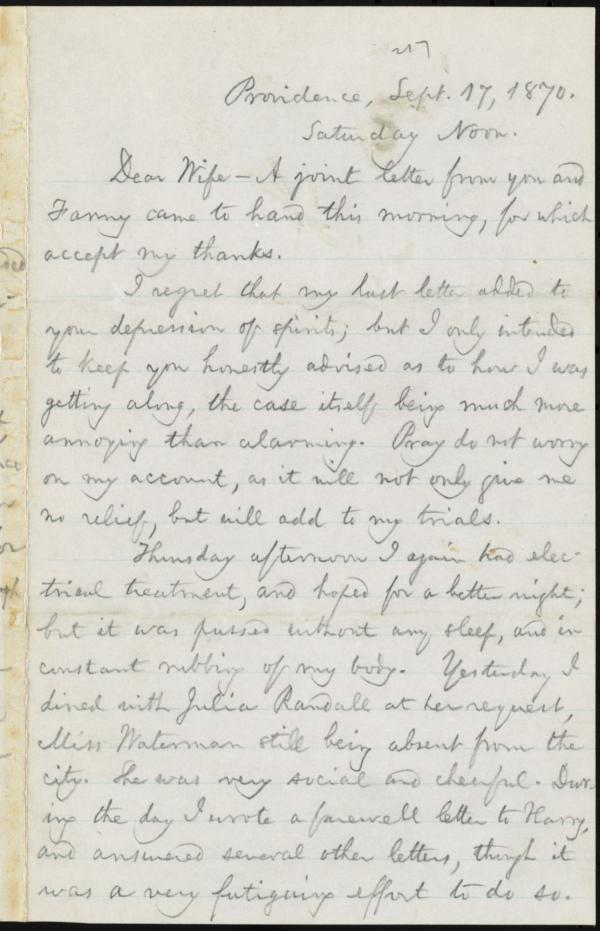 217
Providence, Sept. 17, 1870.
Saturday Noon.
Dear Wife – A joint letter from you and
Fanny came to hand this morning, for which
accept my thanks.
I regret that my last letter added to
your depression of spirits; but I only intended
to keep you honestly advised as to how I was
getting along, the case itself being much more
annoying than alarming. Pray do not worry
on my account, as it will not only give me
no relief, but will add to my trials.
Thursday afternoon I again had elec-
trical treatment, and hoped for a better night;
but it was passed without any sleep, and in
constant rubbing of my body. Yesterday I
dined with Julia Randall at her request,
Miss Waterman still being absent from the
city. She was very social and cheerful. Dur-
ing the day I wrote a farewell letter to Harry,
and answered several other letters, though it
was a very fatiguing effort to do so.